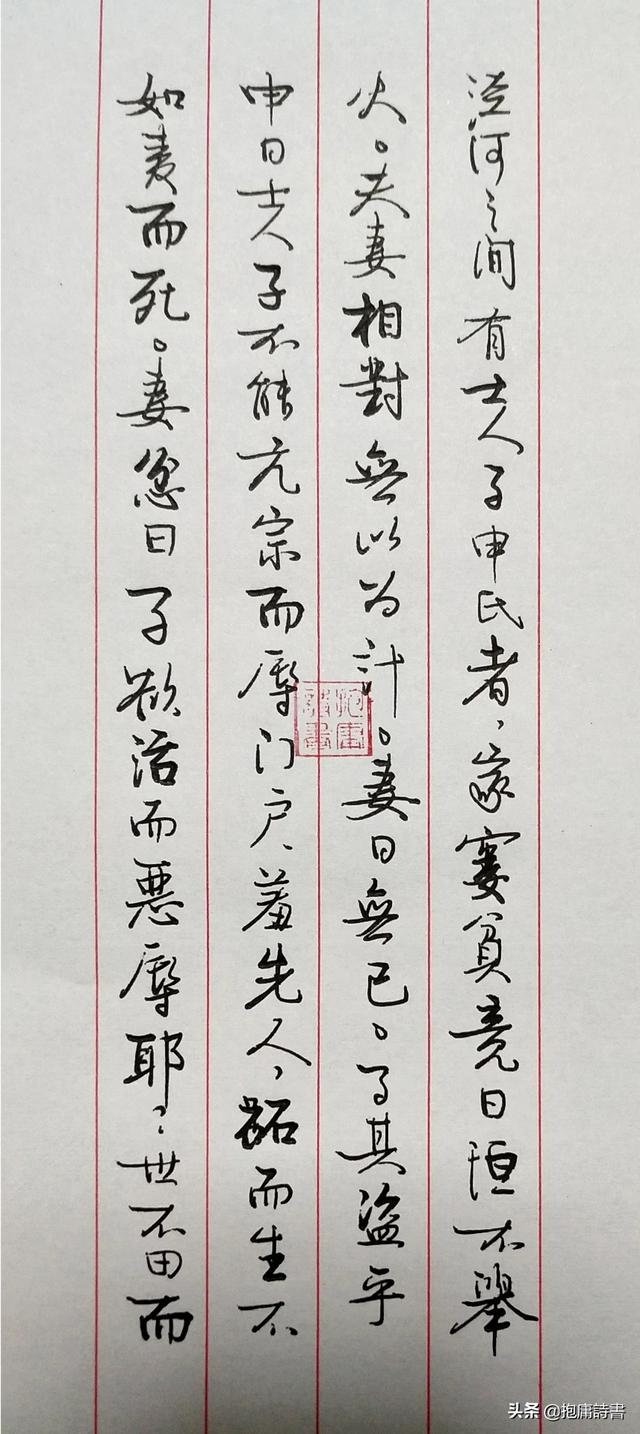 泾河之间有士人子申氏者，家窭貧竟日恒不舉
火。夫妻相對無以为計。妻曰無已。子其盗乎
申曰士人子不能亢宗而辱门户、羞先人，跖而生不
如夷而死。妻忿曰子欲活而惡辱耶？世不田而
抱庸詩書
头条 @抱庸詩書